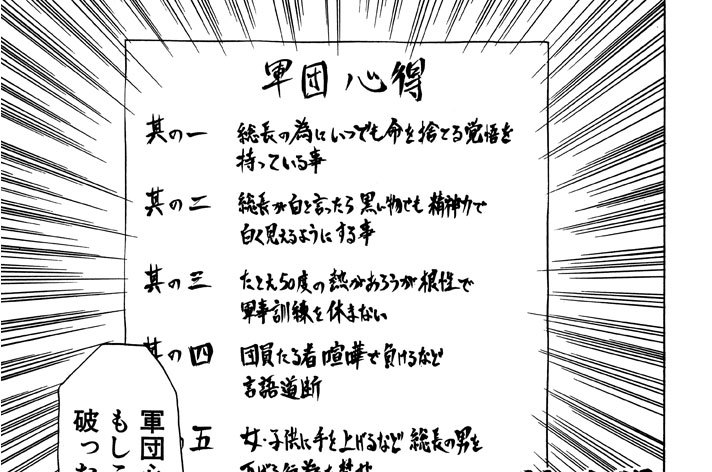 軍団心得
其の一
総長の為にいつでも命を捨てる覚悟を
持っている事
其の二
総長が白と言ったら黒い物でも精神力で
白く見えるようにする事
其の三
たとえ50度の熱があろうが根性で
軍事訓練を休まない
其の四
団員たる者喧嘩で負けるなど
言語道断
の五
女・子供に手を上げるなど総長の男を
下げる行為を禁ず
軍団
もしこ
破った